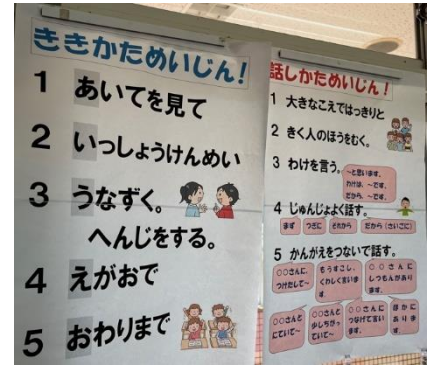 ききかためいじん!
1 あいてを見て
2 いっしょうけんめい
3 うなずく。
へんじをする。
4 えがおで
5 おわりまで
話しかためいじん!
1 大きなこえではっきりと
2 きく人のほうをむく。
3 わけを言う。
~と思います。
わけは、~です。
だから、~です。
4 じゅんじょよく話す。
まず つぎに それから だから(さいごに)
5 かんがえをつないで話す。
○○さんに、
つけたして~
もうすこし、
くわしく言いま
す。
○○さんに
しつもんがあり
ます。
○○さんと
にていて~
○○さんと
少しちがっ
ていて~
○○さんに
つなげて言い
ます。
ほかに
ありま
す。